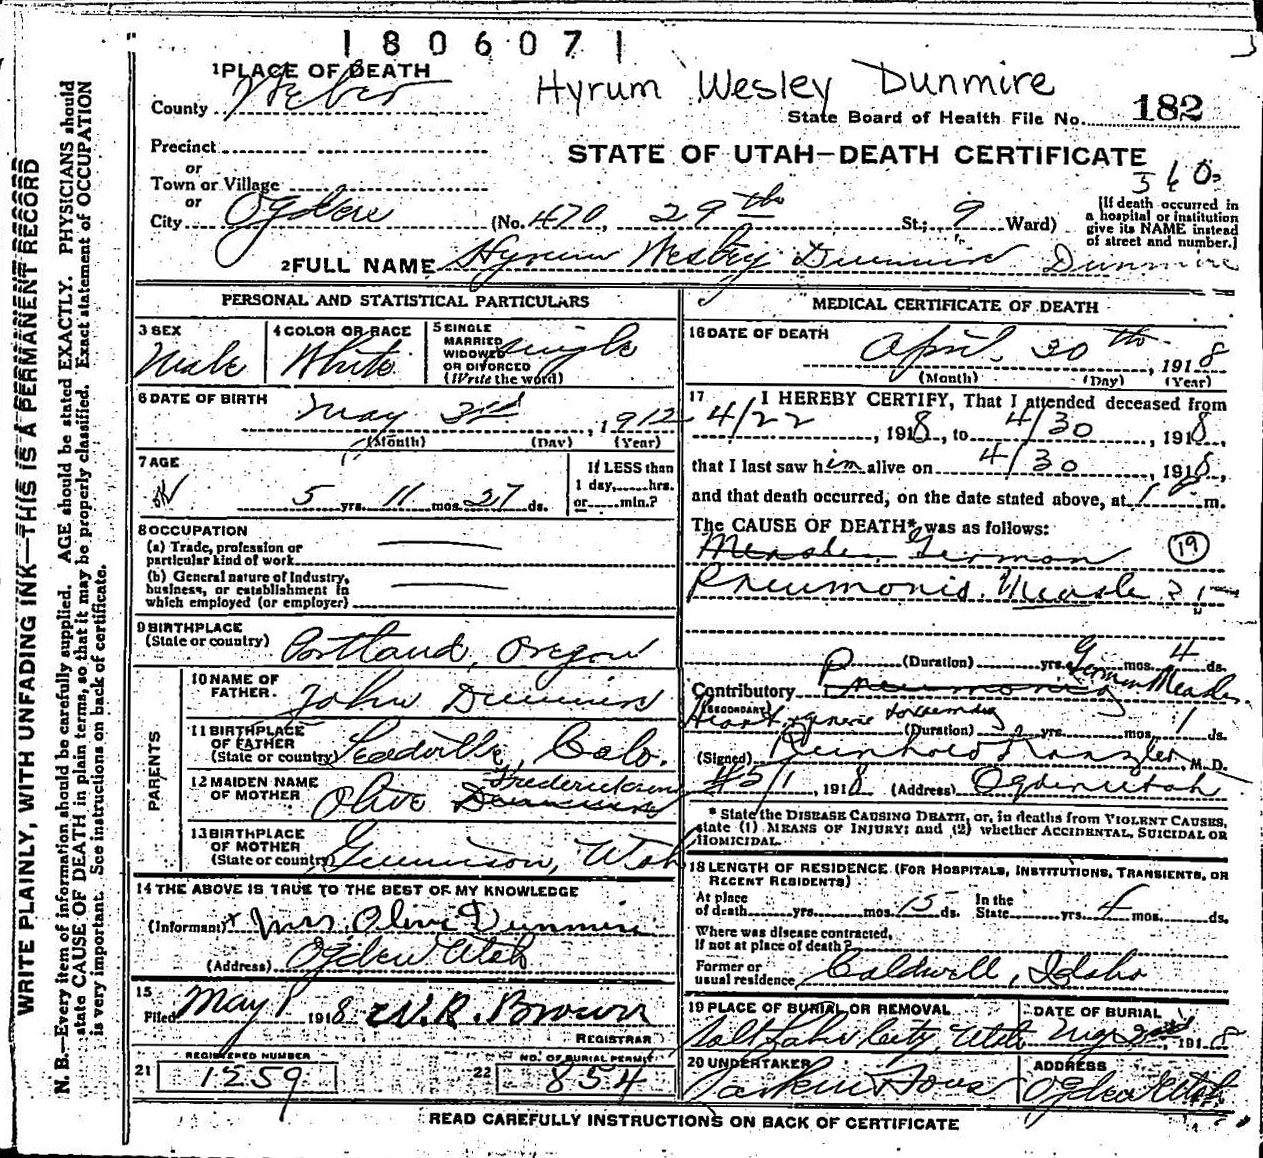 1806071
1 PLACE OF DEATH
Hyrum Wesley Dunmire
County Weber
State Board of Health File No. 182
Precinct
STATE OF UTAH—DEATH CERTIFICATE
or
Town or Village
or
City Ogden (No. 470, 29th St.; 9 Ward)
[If death occurred in
a hospital or institution
give its NAME instead
of street and number.]
2 FULL NAME Hyrum Wesley Dunmire Dunmire
WRITE PLAINLY, WITH UNFADING INK—THIS IS A PERMANENT RECORD
N. B.—Every item of information should be carefully supplied. AGE should be stated EXACTLY. PHYSICIANS should
state CAUSE OF DEATH in plain terms, so that it may be properly classified. Exact statement of OCCUPATION
is very important. See instructions on back of certificate.
PERSONAL AND STATISTICAL PARTICULARS
3 SEX
Male
4 COLOR OR RACE
White
5 SINGLE
MARRIED
WIDOWED
OR DIVORCED
(Write the word)
single
6 DATE OF BIRTH
May 3rd, 1912
(Month) (Day) (Year)
7 AGE
OK
5 yrs. 11 mos. 27 ds.
If LESS than
1 day, hrs.
or min.?
8 OCCUPATION
(a) Trade, profession or
particular kind of work
(b) General nature of Industry,
business, or establishment in
which employed (or employer)
9 BIRTHPLACE
(State or country) Portland, Oregon
PARENTS
10 NAME OF
FATHER. John Dunmire
11 BIRTHPLACE
OF FATHER
(State or country) Leadville, Colo.
12 MAIDEN NAME
OF MOTHER Olive
13 BIRTHPLACE
OF MOTHER
(State or country) Gunnison, Utah
14 THE ABOVE IS TRUE TO THE BEST OF MY KNOWLEDGE
(Informant) x Mrs. Olive Dunmire
(Address) Ogden Utah
15
Filed May 1 1918 W. R. Brown
REGISTRAR
21 REGISTERED NUMBER
1259
22 NO. OF BURIAL PERMIT
854
MEDICAL CERTIFICATE OF DEATH
16 DATE OF DEATH
April 30th, 1918
(Month) (Day) (Year)
17 I HEREBY CERTIFY, That I attended deceased from
4/22, 1918, to 4/30, 1918,
that I last saw him alive on 4/30, 1918,
and that death occurred, on the date stated above, at m.
The CAUSE OF DEATH* was as follows:
Measles German 19
Pneumonia. Measle
(Duration) yrs. mos. 4 ds.
Contributory Pneumonia German Measles
(SECONDARY)
Heart
(Duration) yrs. mos. 1 ds.
(Signed) Reinhold Kanzler M. D.
5/1, 1918 (Address) Ogden Utah
* State the DISEASE CAUSING DEATH, or, in deaths from VIOLENT CAUSES,
state (1) MEANS OF INJURY; and (2) whether ACCIDENTAL, SUICIDAL OR
HOMICIDAL.
18 LENGTH OF RESIDENCE (FOR HOSPITALS, INSTITUTIONS, TRANSIENTS, OR
RECENT RESIDENTS)
At place
of death yrs. mos. 15 ds.
In the
State yrs. 4 mos. ds.
Where was disease contracted,
if not at place of death?
Former or
usual residence Caldwell, Idaho
19 PLACE OF BURIAL OR REMOVAL
Salt Lake City, Utah
DATE OF BURIAL
May 2nd 1918
20 UNDERTAKER
Larkin & Sons
ADDRESS
Ogden Utah
READ CAREFULLY INSTRUCTIONS ON BACK OF CERTIFICATE